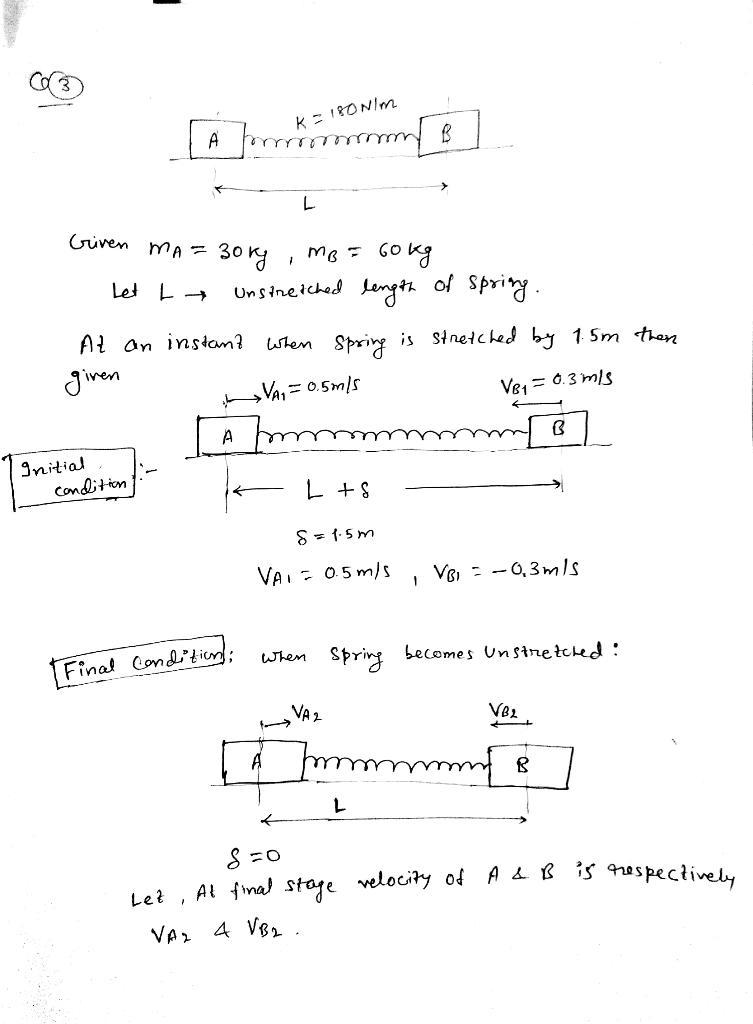 Q 3
K = 180 N/m
A B
L
Given mA = 30 kg , mB = 60 kg
Let L → Unstretched length of spring.
At an instant when spring is stretched by 1.5m then
given
VA1 = 0.5m/s VB1 = 0.3 m/s
A B
Initial condition :-
L + δ
δ = 1.5 m
VA1 = 0.5 m/s , VB1 = -0.3 m/s
Final Condition; when spring becomes Unstretched :
VA2 VB2
A B
L
δ = 0
Let , At final stage velocity of A & B is respectively
VA2 & VB2 .